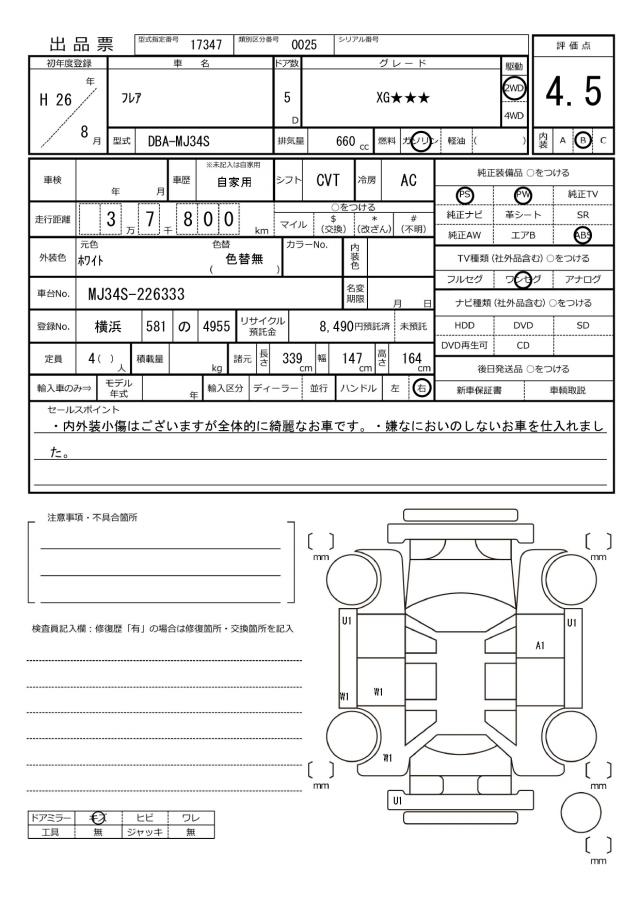 出品票 型式指定番号 17347 類別区分番号 0025 シリアル番号
評価点
4.5
内装 A B C
初年度登録 車名 ドア数 グレード 駆動
H 26 年 8 月 フレア 5 D XG★★★ 2WD 4WD
型式 DBA-MJ34S 排気量 660 cc 燃料 ガソリン 軽油 ( )
車検 年 月 車歴 ※未記入は自家用 自家用 シフト CVT 冷房 AC
走行距離 3 万 7 千 8 0 0 km ○をつける
マイル $ (交換) * (改ざん) # (不明)
外装色 元色 ホワイト 色替 ( 色替無 ) カラーNo. 内装色
車台No. MJ34S-226333 名変期限 月 日
登録No. 横浜 581 の 4955 リサイクル預託金 8,490円預託済 未預託
定員 4 ( ) 人 積載量 kg 諸元 長さ 339 cm 幅 147 cm 高さ 164 cm
輸入車のみ⇒ モデル年式 年 輸入区分 ディーラー 並行 ハンドル 左 右
純正装備品 ○をつける
PS PW 純正TV
純正ナビ 革シート SR
純正AW エアB ABS
TV種類(社外品含む)○をつける
フルセグ ワンセグ アナログ
ナビ種類(社外品含む)○をつける
HDD DVD SD
DVD再生可 CD
後日発送品 ○をつける
新車保証書 車輌取説
セールスポイント
・内外装小傷はございますが全体的に綺麗なお車です。・嫌なにおいのしないお車を仕入れまし
た。
注意事項・不具合箇所
検査員記入欄：修復歴「有」の場合は修復箇所・交換箇所を記入
ドアミラー キズ ヒビ ワレ
工具 無 ジャッキ 無
〔 〕 mm 〔 〕 mm
U1 U1
A1
W1 W1
W1
〔 〕 mm 〔 〕 mm
U1
〔 〕 mm